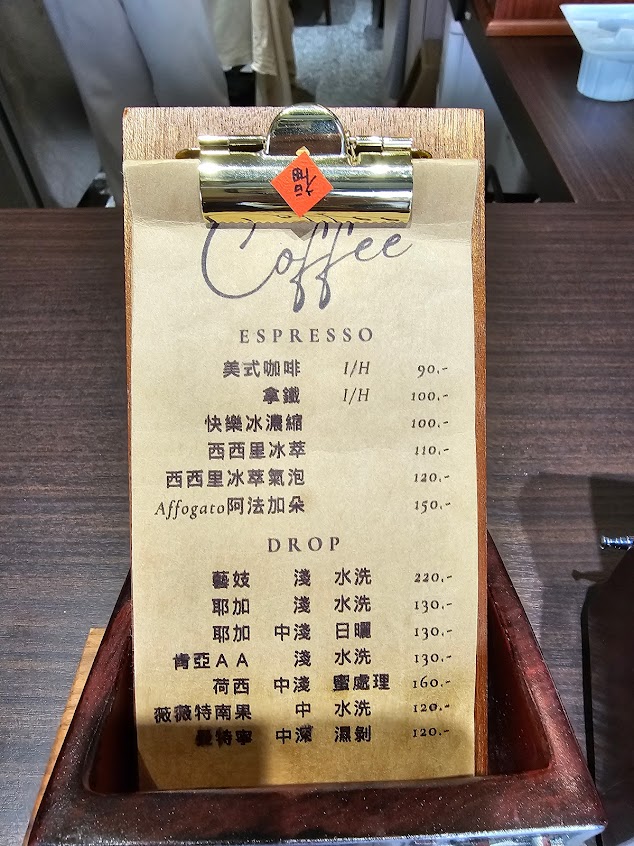 福
Coffee
ESPRESSO
美式咖啡 I/H 90.-
拿鐵 I/H 100.-
快樂冰濃縮 100.-
西西里冰萃 110.-
西西里冰萃氣泡 120.-
Affogato阿法加朵 150.-
DROP
藝妓 淺 水洗 220.-
耶加 淺 水洗 130.-
耶加 中淺 日曬 130.-
肯亞AA 淺 水洗 130.-
荷西 中淺 蜜處理 160.-
薇薇特南果 中 水洗 120.-
曼特寧 中深 濕剝 120.-